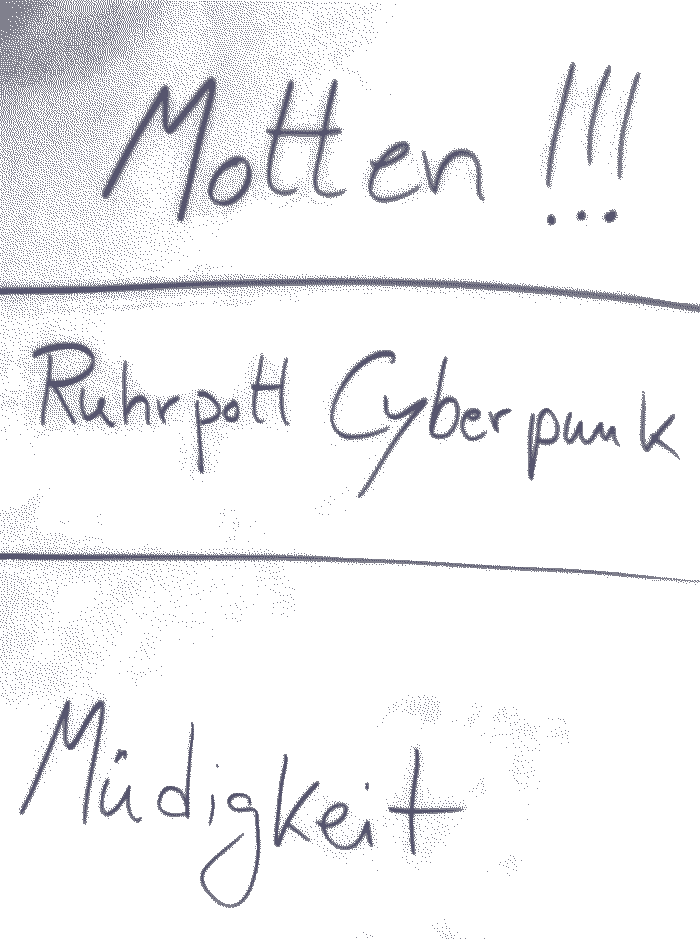 Motten !!!
Ruhrpott Cyberpunk
Müdigkeit